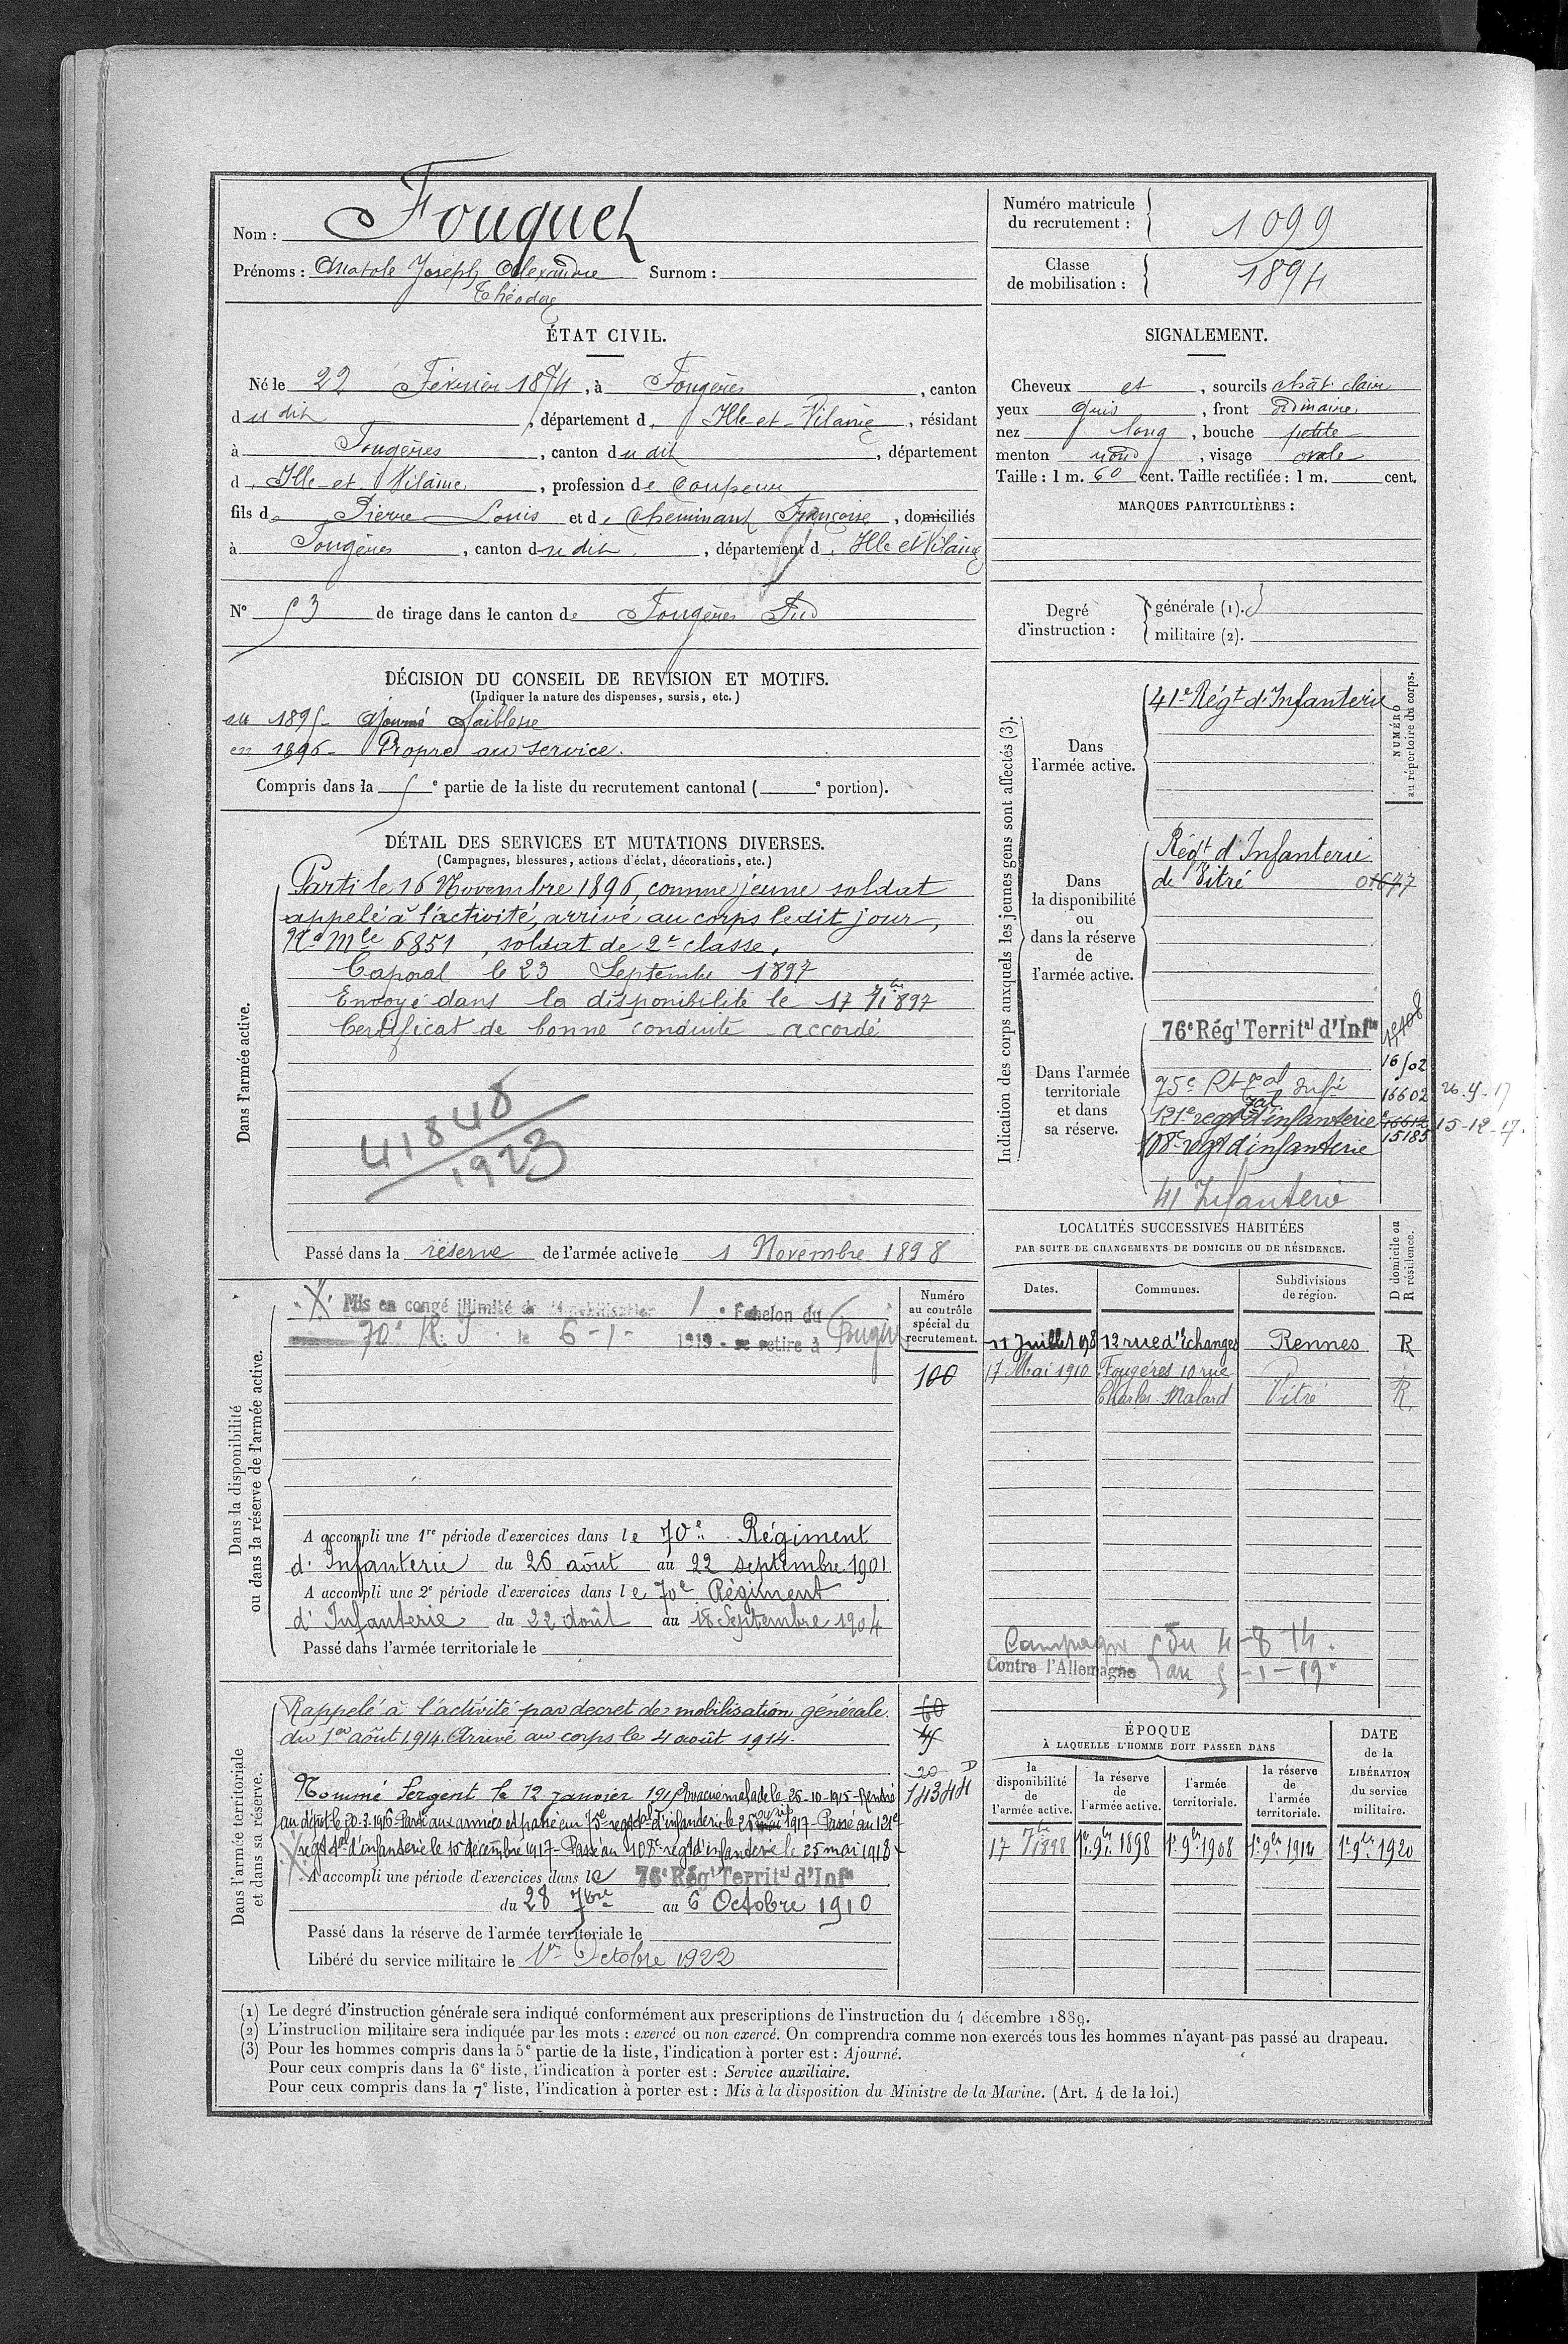 Nom : Fouquet
Prénoms : Anatole Joseph Alexandre Surnom :
Théodore
Numéro matricule
du recrutement :
1099
Classe
de mobilisation :
1894
ÉTAT CIVIL.
Né le 22 Février 1874, à Fougères, canton
dudit, département d'Ille-et-Vilaine, résidant
à Fougères, canton dudit, département
d'Ille-et-Vilaine, profession de Coupeur
fils de Pierre Louis et de Cheminant Françoise, domiciliés
à Fougères, canton dudit, département d'Ille et Vilaine
N° 53 de tirage dans le canton de Fougères Sud
SIGNALEMENT.
Cheveux et, sourcils chât clair
yeux gris, front ordinaire
nez long, bouche petite
menton rond, visage ovale
Taille : 1 m. 60 cent. Taille rectifiée : 1 m. cent.
MARQUES PARTICULIÈRES :
Degré
d'instruction :
générale (1). 3
militaire (2).
DÉCISION DU CONSEIL DE REVISION ET MOTIFS.
(Indiquer la nature des dispenses, sursis, etc.)
en 1895 - Ajourné faiblesse
en 1896 - Propre au service.
Compris dans la 5e partie de la liste du recrutement cantonal ( e portion).
DÉTAIL DES SERVICES ET MUTATIONS DIVERSES.
(Campagnes, blessures, actions d'éclat, décorations, etc.)
Dans l'armée active.
Parti le 16 Novembre 1896, comme jeune soldat
appelé à l'activité, arrivé au corps ledit jour,
No Mle 6851, soldat de 2e classe.
Caporal le 23 Septembre 1897
Envoyé dans la disponibilité le 17 7bre 1897
Certificat de bonne conduite accordé
41848
1923
Passé dans la réserve de l'armée active le 1 Novembre 1898
Indication des corps auxquels les jeunes gens sont affectés (3).
NUMÉRO
au répertoire du corps.
Dans
l'armée active.
41e Régt d'Infanterie
Dans
la disponibilité
ou
dans la réserve
de
l'armée active.
Régt d'Infanterie
de Vitré
Dans l'armée
territoriale
et dans
sa réserve.
76e Régt Territal d'Infie
16502
75e Rt Tal Infie 16602 26-4-17
121e regt Tal d'infanterie 16612 15-12-17.
108e regt d'infanterie 15185
41 Infanterie
LOCALITÉS SUCCESSIVES HABITÉES
PAR SUITE DE CHANGEMENTS DE DOMICILE OU DE RÉSIDENCE.
D domicile ou
R résidence.
Dates. Communes. Subdivisions
de région.
11 Juillet 1908 12 rue d'Echanges Rennes R
17 Mai 1910 Fougères 10 rue
Charles Malard Vitré R.
Campagne du 4-8-14.
Contre l'Allemagne au 5-1-19.
Dans la disponibilité
ou dans la réserve de l'armée active.
Numéro
au contrôle
spécial du
recrutement.
100
Mis en congé illimité de démobilisation 1e Echelon du
70e R. I. le 6-1-1919 - se retire à Fougères
A accompli une 1re période d'exercices dans le 70e Régiment
d'Infanterie du 26 août au 22 septembre 1901
A accompli une 2e période d'exercices dans le 70e Régiment
d'Infanterie du 22 Août au 18 Septembre 1904
Passé dans l'armée territoriale le
Dans l'armée territoriale
et dans sa réserve.
Rappelé à l'activité par decret de mobilisation générale. 60
du 1er août 1914. Arrivé au corps le 4 août 1914.
20 D
14344
Nommé Sergent le 12 janvier 1915 Evacué malade le 26-10-1915 - Rentré
au dépôt le 20-3-1916 - Parti aux armées et passé au 75e regt tal d'infanterie le 25 avril 1917 - Passé au 121e
regt tal d'infanterie le 15 décembre 1917 - Passé au 108e regt d'infanterie le 25 mai 1918
A accompli une période d'exercices dans le 76e Régt Territal d'Infie
du 28 7bre au 6 Octobre 1910
Passé dans la réserve de l'armée territoriale le
Libéré du service militaire le 1er Octobre 1922
ÉPOQUE
À LAQUELLE L'HOMME DOIT PASSER DANS
DATE
de la
LIBÉRATION
du service
militaire.
la
disponibilité
de
l'armée active.
la réserve
de
l'armée active.
l'armée
territoriale.
la réserve
de
l'armée
territoriale.
17 7bre 1898 1er 9bre 1898 1er 9bre 1908 1er 9bre 1914 1er 9bre 1920
(1) Le degré d'instruction générale sera indiqué conformément aux prescriptions de l'instruction du 4 décembre 1889.
(2) L'instruction militaire sera indiquée par les mots : exercé ou non exercé. On comprendra comme non exercés tous les hommes n'ayant pas passé au drapeau.
(3) Pour les hommes compris dans la 5e partie de la liste, l'indication à porter est : Ajourné.
Pour ceux compris dans la 6e liste, l'indication à porter est : Service auxiliaire.
Pour ceux compris dans la 7e liste, l'indication à porter est : Mis à la disposition du Ministre de la Marine. (Art. 4 de la loi.)